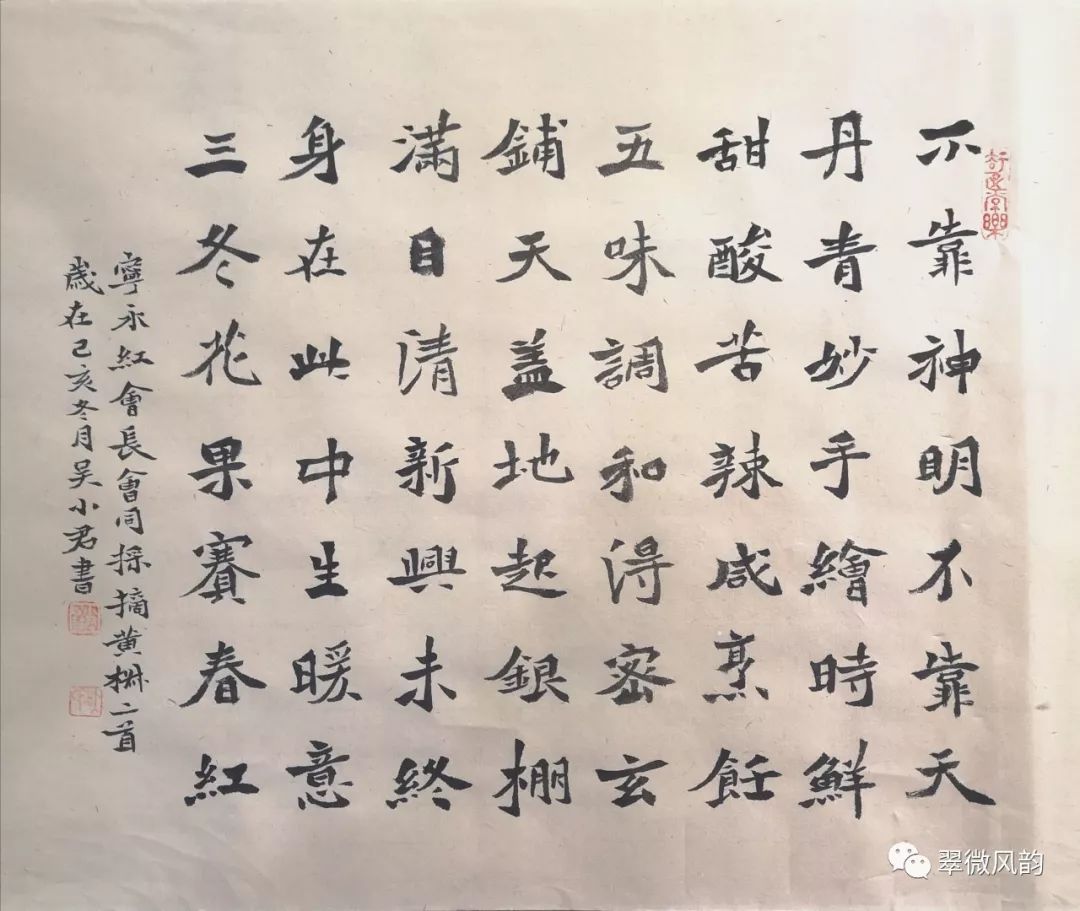 不靠神明不靠天
丹青妙手繪時鮮
甜酸苦辣咸烹飪
五味調和淂密玄
鋪天盖地起銀棚
滿目清新興未終
身在此中生暖意
三冬花果賽春紅
寧永紅會長會同採摘黄柵二首
歲在己亥冬月吴小君書
翠微风韵